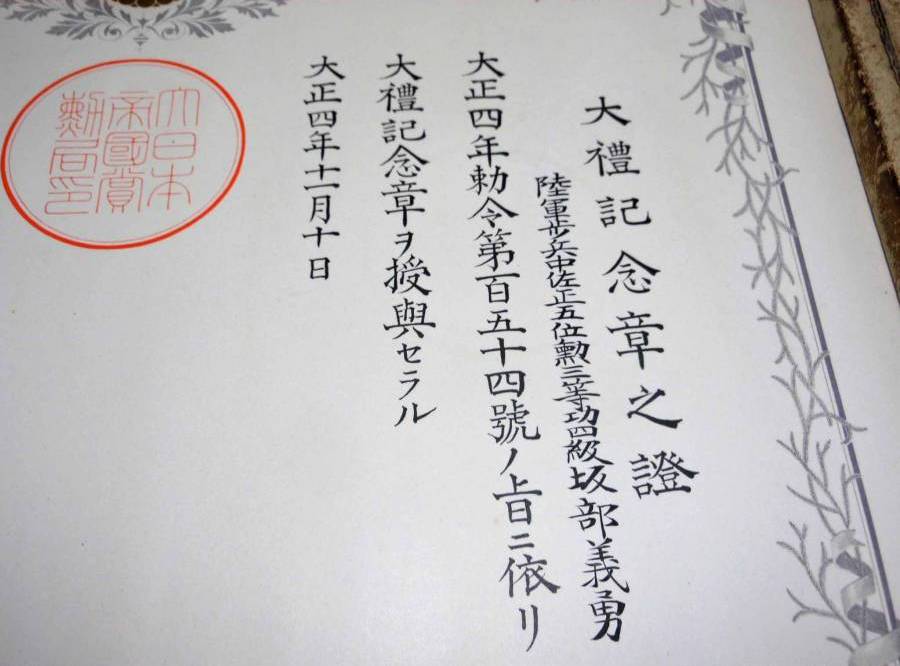 大禮記念章之證
陸軍歩兵中佐正五位勲三等功四級坂部義勇
大正四年勅令第百五十四號ノ旨ニ依リ
大禮記念章ヲ授與セラル
大正四年十一月十日
大日本
帝國賞
勲局印